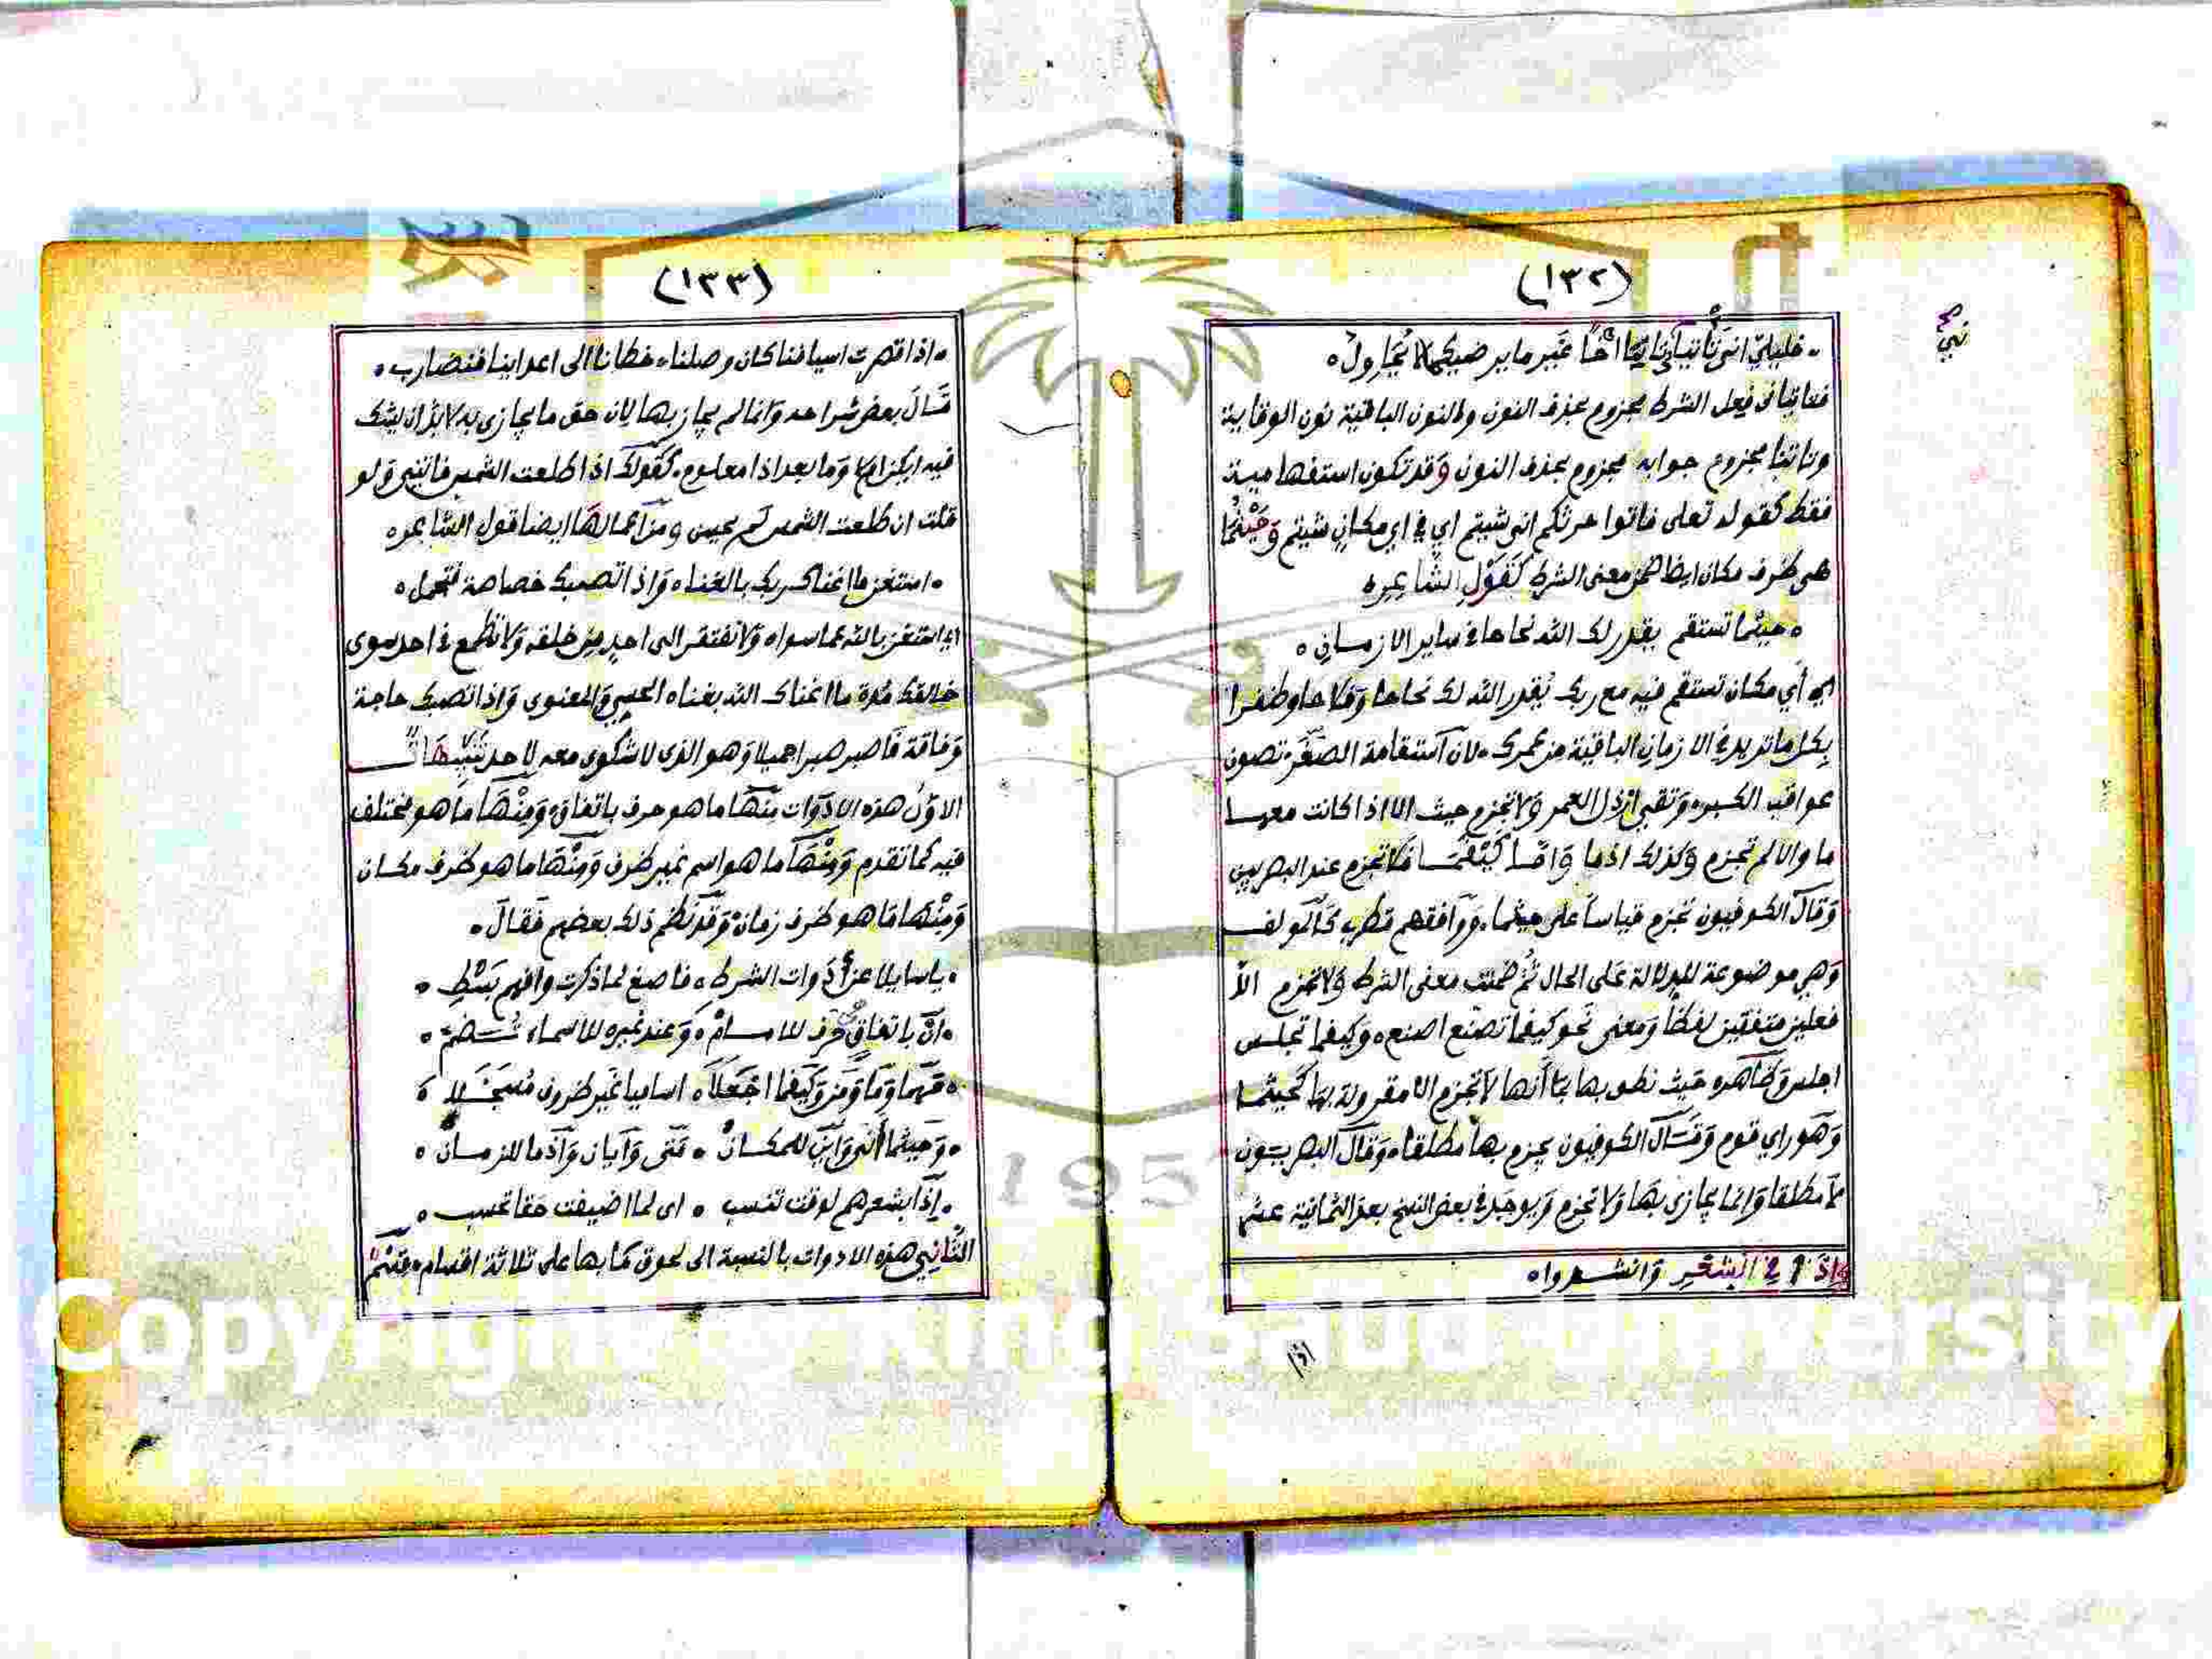 (١٣٢)
خليليّ انى تأتياني تأتيا اخاً غير ما يرضيكما لا يُحَاوِلُ
فتأتياني فعل الشرط مجزوم بحذف النون والنون الباقية نون الوقاية
وتاتيا مجزوم جوابه مجزوم بحذف النون وقد تكون استفهامية
فقط كقوله تعلى فاتوا حرثكم انى شيتم اي في اي مكان شيتم وَحَيْثُمَا
هي ظرف مكان ايضا ضمن معنى الشرط كَقَوْلِ الشَّاعِرِ
حيثما تستقم يقدر لك الله نجاحا في ساير الازمانِ
اي أي مكان تستقم فيه مع ربك يُقدر الله لك نجاحا وَفلاحا وظفرا
بكل ما تريد في الازمان الباقية من عمرك لان استقامة الصغَر تصون
عواقب الكبر وَتقي ارذل العمر وَلا تجزم حيث الا اذا كانت معها
ما والا لم تجزم وَكذلك اذما وَامّا كَيْفَمَا فَلا تجزم عند البصريين
وَقال الكوفيون تجزم قياساً على حيثما وَوَافقهم قطرب كالمولف
وَهي موضوعة للدلالة عَلى الحال ثُم ضمنت معنى الشرط وَلا تجزم الاّ
فعلين متفقين لفظاً وَمعنى نحو كيفما تصنع اصنع وكيفما تجلس
اجلس وَظاهره حَيث نطق بها بما أنها لا تجزم الا مقرونة بها كحيثما
وَهو راي قوم وَقَال الكوفيون يجزم بها مطلقا وَقال البصريون
لا مطلقا وَانما يجازى بَها وَلا تجزم وَيوجد في بعض النسخ بعد الثمانية عشر
وَاِذَا في الشعْرِ وَانشدوا
اذا
(١٣٣)
اذا قصرت اسيافنا كان وصلنا خطانا الى اعداينا فنضارب
قَال بعض شراحه وَانما لم يجاز بها لان حق ما يجازى به لا بدّ ان يشك
فيه ايكن ام لا وَما بعد اذا معلوم كقولك اذا طلعت الشمس فاتني وَلو
قلت ان طلعت الشمس لم يحسن ومن اعمالها ايضا قول الشاعر
استغن ما اغناك ربك بالغنا وَاذا تصبك خصاصة فتجمل
اي استغن بالله عما سواه وَلا تفتقر الى احدٍ من خلقه وَلا تطمع في احد سوى
خالقك مُدة ما اغناك الله بغناه الحسي وَالمعنوى وَاذا تصبك حاجة
وَفاقة فَاصبر صبرا جميلا وَهو الذي لا شكوى معه لاحد تَنْبِيْهَاتٌ
الاوّل هذه الادَوات مِنْهَا ما هو حرف باتفاق وَمِنْهَا مَا هو مختلف
فيه كما تقدم وَمِنْهَا ما هو اسم غير ظرف وَمِنْهَا ما هو ظرف مكان
وَمِنْهَا مَا هو ظرف زمان وَقَدْ نَظم ذلك بعضهم فَقَالَ
يا سايلا عن أدَوات الشرط فاصغ لما ذكرت وافهم بَسْطِي
انْ باتفاق حرْف للاسامْ وَعند غيره للاسماء تُضم
مَهْمَا وَمَا وَمَن وَكَيفما اجْعَلا اساميا غَير ظروف مُسْجَلا
وَحَيثما أنّى وَأين للمكانْ مَتَى وَأيان وَاذما للزمانْ
إذَا بشعرهم لوقت تنسب اى لما اضيفت حَقا تحسب
الثَّانِي هذه الادوات بالنسبة الى لحوق مَا بها على ثلاثة اقسام قِسْمٌ
Copyright © King Saud University
1957